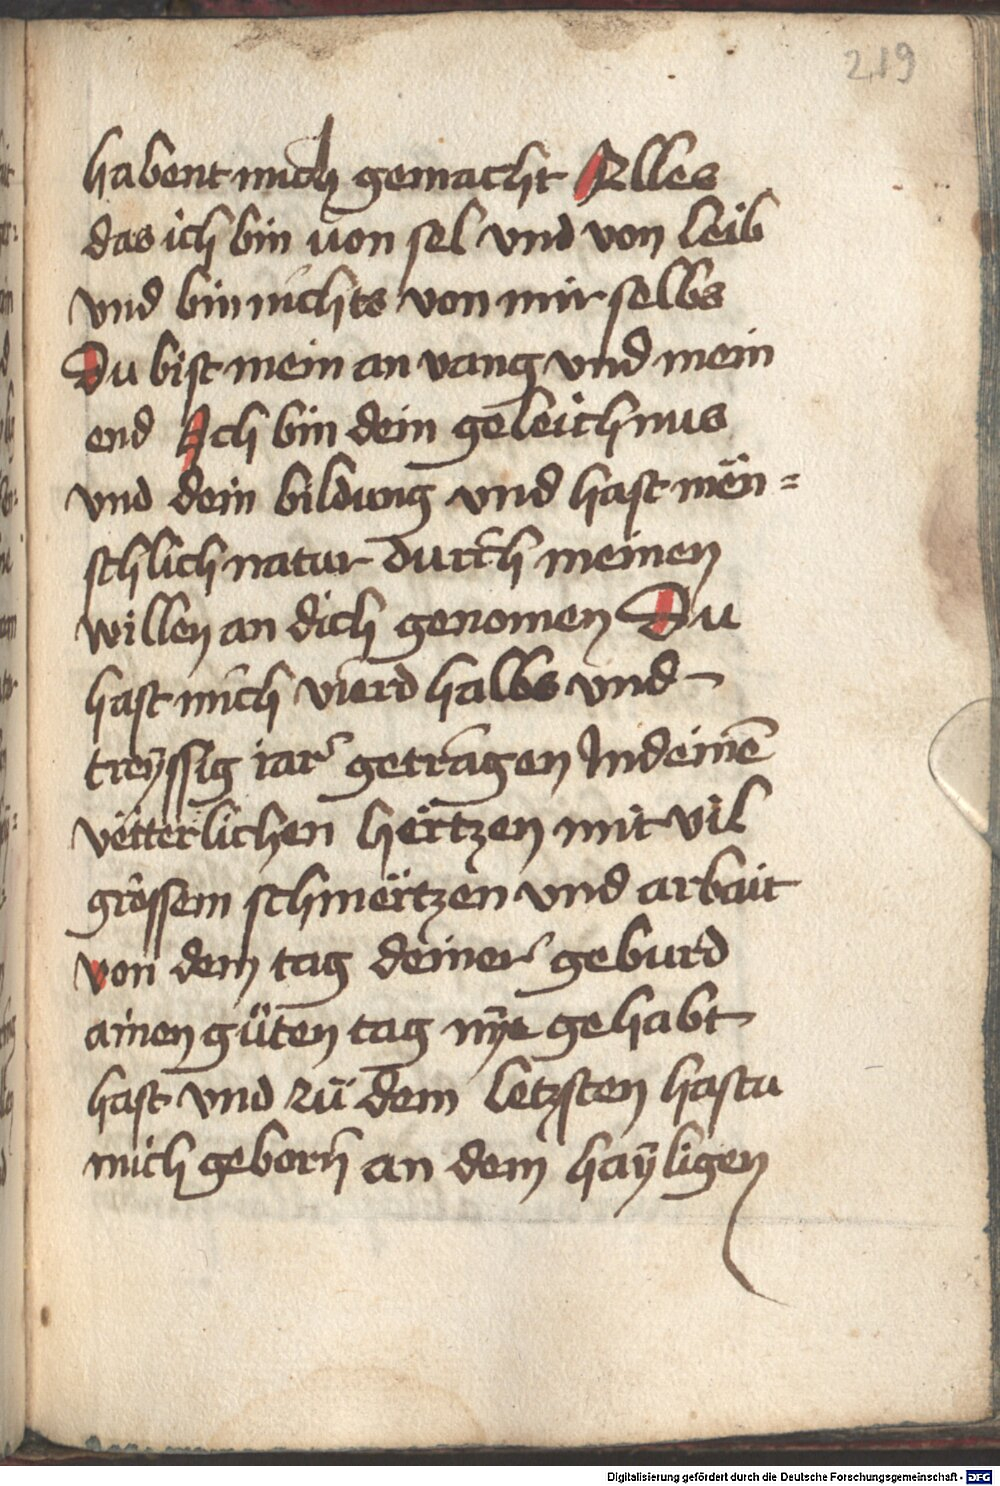 219
habent mich gemacht Alles
das ich bin von sel vnd von leib
vnd bin nichts von mir selbs
Du bist mein an vang vnd mein
end Ich bin dein geleichnus
vnd dein bildung vnd hast mën=
schlich natur durch meinen
willen an dich genomen Du
hast mich vierd halbs vnd
treÿssig iar getragen Indeinē
vëtterlichen hërtzen mit vil
grossem schmërtzen vnd arbait
von dem tag deiner geburd
ainen gůten tag nÿe gehabt
hast vnd zů dem letzsten hastu
mich geborñ an dem haÿligen
Digitalisierung gefördert durch die Deutsche Forschungsgemeinschaft - DFG